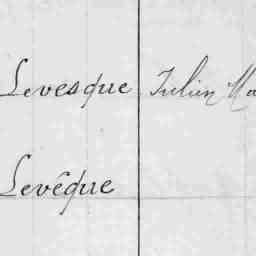 Levesque Julien Ma
Levêque